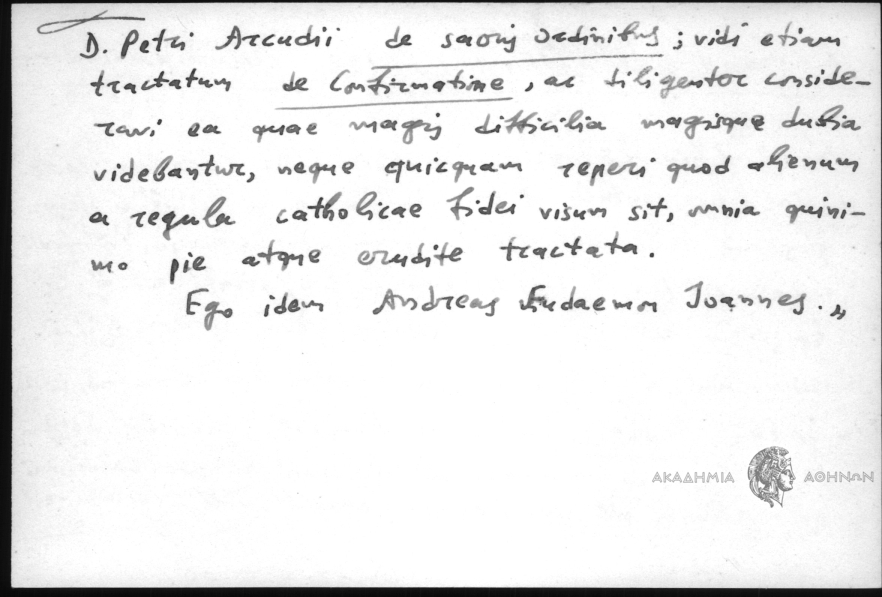 D. Petri Arcudii de sacris ordinibus; vidi etiam
tractatum de Confirmatione, ac diligenter conside-
ravi ea quae magis difficilia magisque dubia
videbantur, neque quicquam reperi quod alienum
a regula catholicae fidei visum sit, omnia quini-
mo pie atque erudite tractata.
Ego idem Andreas Eudaemon Joannes.„
ΑΚΑΔΗΜΙΑ ΑΘΗΝΩΝ